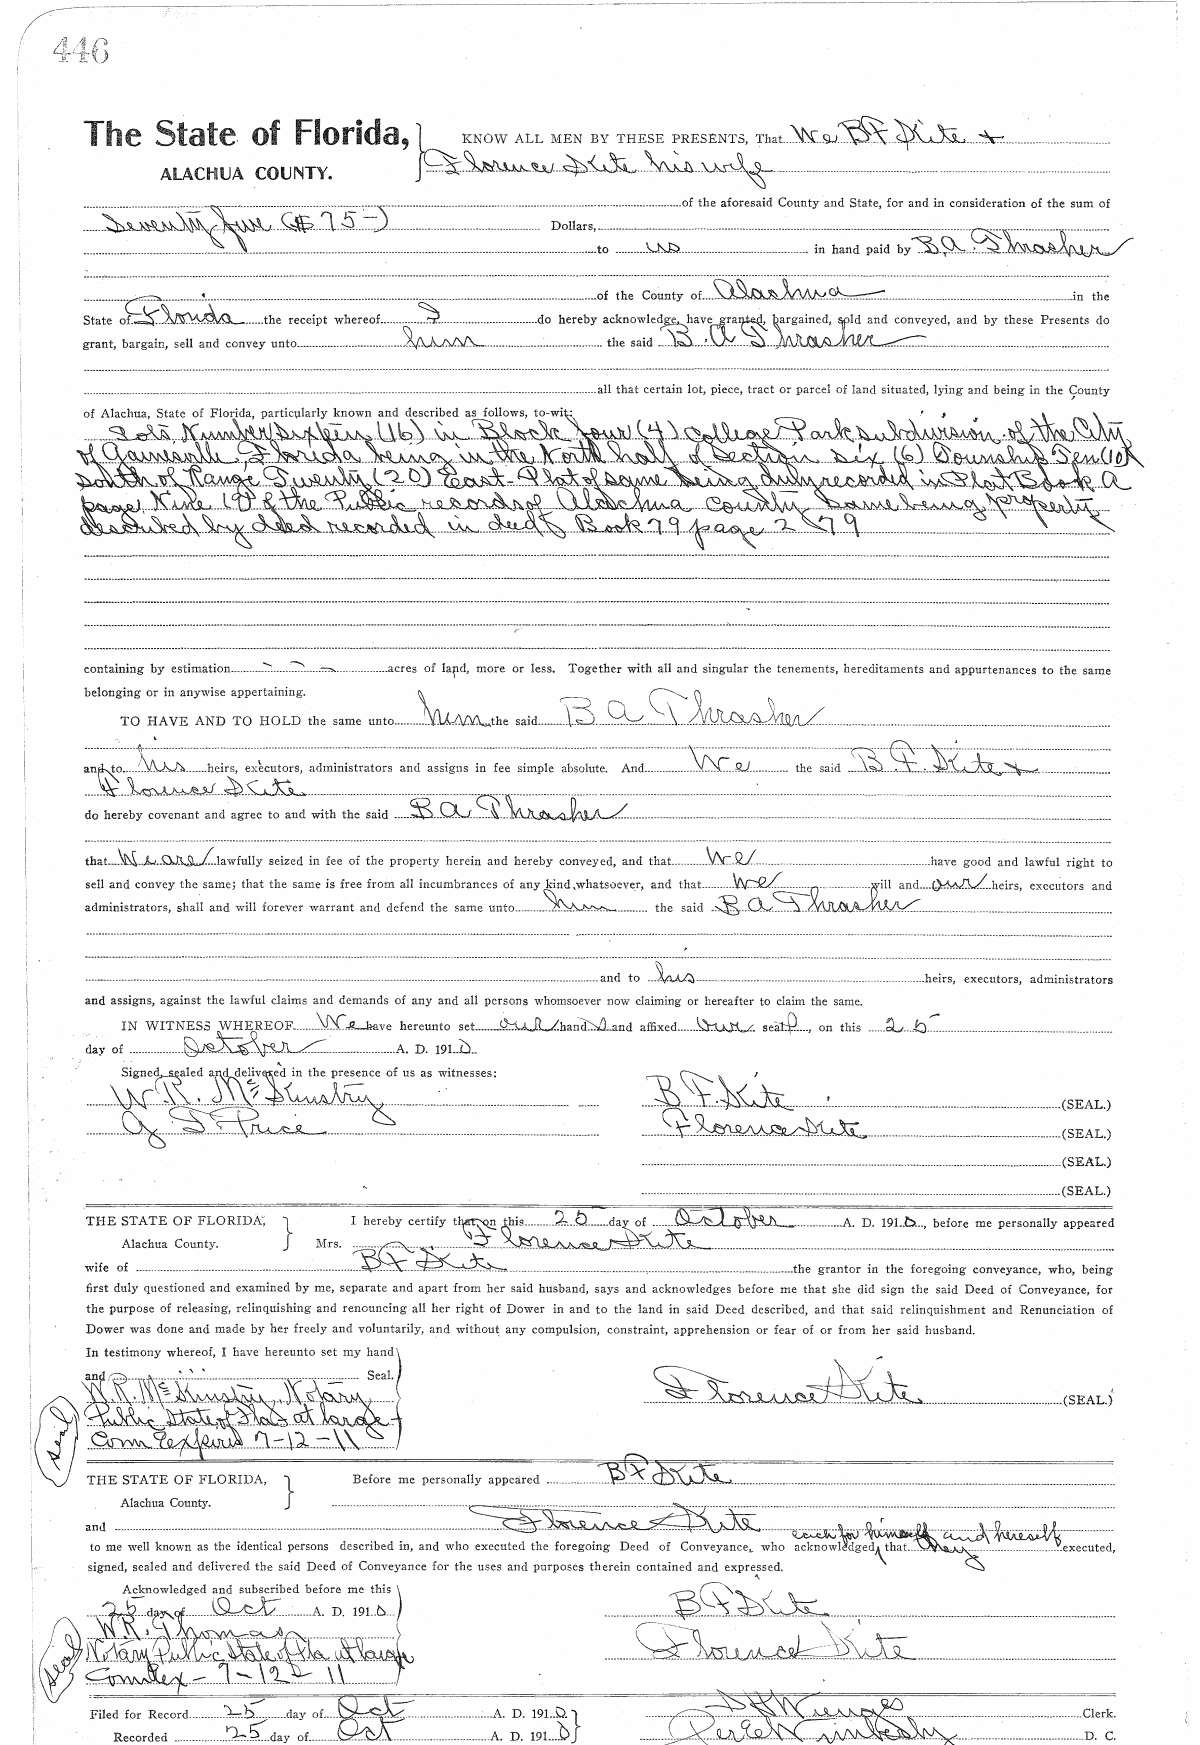 446
The State of Florida, KNOW ALL MEN BY THESE PRESENTS, That We B F Skite +
ALACHUA COUNTY. Florence Skite his wife
of the aforesaid County and State, for and in consideration of the sum of
Seventy five ($75-) Dollars,
to us in hand paid by B. A. Thrasher
of the County of Alachua in the
State of Florida the receipt whereof do hereby acknowledge, have granted, bargained, sold and conveyed, and by these Presents do
grant, bargain, sell and convey unto him the said B. A Thrasher
all that certain lot, piece, tract or parcel of land situated, lying and being in the County
of Alachua, State of Florida, particularly known and described as follows, to-wit:
Lots Number sixteen (16) in Block four (4) College Park subdivision of the City
of Gainesville, Florida being in the North half of Section six (6) Township Ten (10)
South of Range Twenty (20) East- Plat of same being duly recorded in Plat Book A
page Nine (9) of the Public records of Alachua County same being property
described by deed recorded in deed Book 79 page 279
containing by estimation - - - acres of land, more or less. Together with all and singular the tenements, hereditaments and appurtenances to the same
belonging or in anywise appertaining.
TO HAVE AND TO HOLD the same unto him the said B A Thrasher
and to his heirs, executors, administrators and assigns in fee simple absolute. And We the said B. F. Skite +
Florence Skite
do hereby covenant and agree to and with the said B A Thrasher
that We are lawfully seized in fee of the property herein and hereby conveyed, and that we have good and lawful right to
sell and convey the same; that the same is free from all incumbrances of any kind whatsoever, and that we will and our heirs, executors and
administrators, shall and will forever warrant and defend the same unto him the said B A Thrasher
and to his heirs, executors, administrators
and assigns, against the lawful claims and demands of any and all persons whomsoever now claiming or hereafter to claim the same.
IN WITNESS WHEREOF We have hereunto set our hands and affixed our seal, on this 25
day of October A. D. 1910.
Signed, sealed and delivered in the presence of us as witnesses:
W. R. McKinstry B. F. Skite (SEAL.)
G S Price Florence Skite (SEAL.)
(SEAL.)
(SEAL.)
THE STATE OF FLORIDA, I hereby certify that on this 25 day of October A. D. 1910, before me personally appeared
Alachua County. Mrs. Florence Skite
wife of B F Skite the grantor in the foregoing conveyance, who, being
first duly questioned and examined by me, separate and apart from her said husband, says and acknowledges before me that she did sign the said Deed of Conveyance, for
the purpose of releasing, relinquishing and renouncing all her right of Dower in and to the land in said Deed described, and that said relinquishment and Renunciation of
Dower was done and made by her freely and voluntarily, and without any compulsion, constraint, apprehension or fear of or from her said husband.
In testimony whereof, I have hereunto set my hand
and Seal.
W. R. McKinstry, Notary Florence Skite (SEAL)
Public State of Fla at large
Com Expires 7-12-11
seal
THE STATE OF FLORIDA, Before me personally appeared B F Skite
Alachua County.
and Florence Skite each for himself and herself
to me well known as the identical persons described in, and who executed the foregoing Deed of Conveyance, who acknowledged, that they executed,
signed, sealed and delivered the said Deed of Conveyance for the uses and purposes therein contained and expressed.
Acknowledged and subscribed before me this
25 day of Oct A. D. 1910 B F Skite
W. R. Thomas
Notary Public State of Fla at large Florence Skite
Com Ex - 7-12-11
seal
Filed for Record 25 day of Oct A. D. 1910 Clerk.
Recorded 25 day of Oct A. D. 1910 D. C.